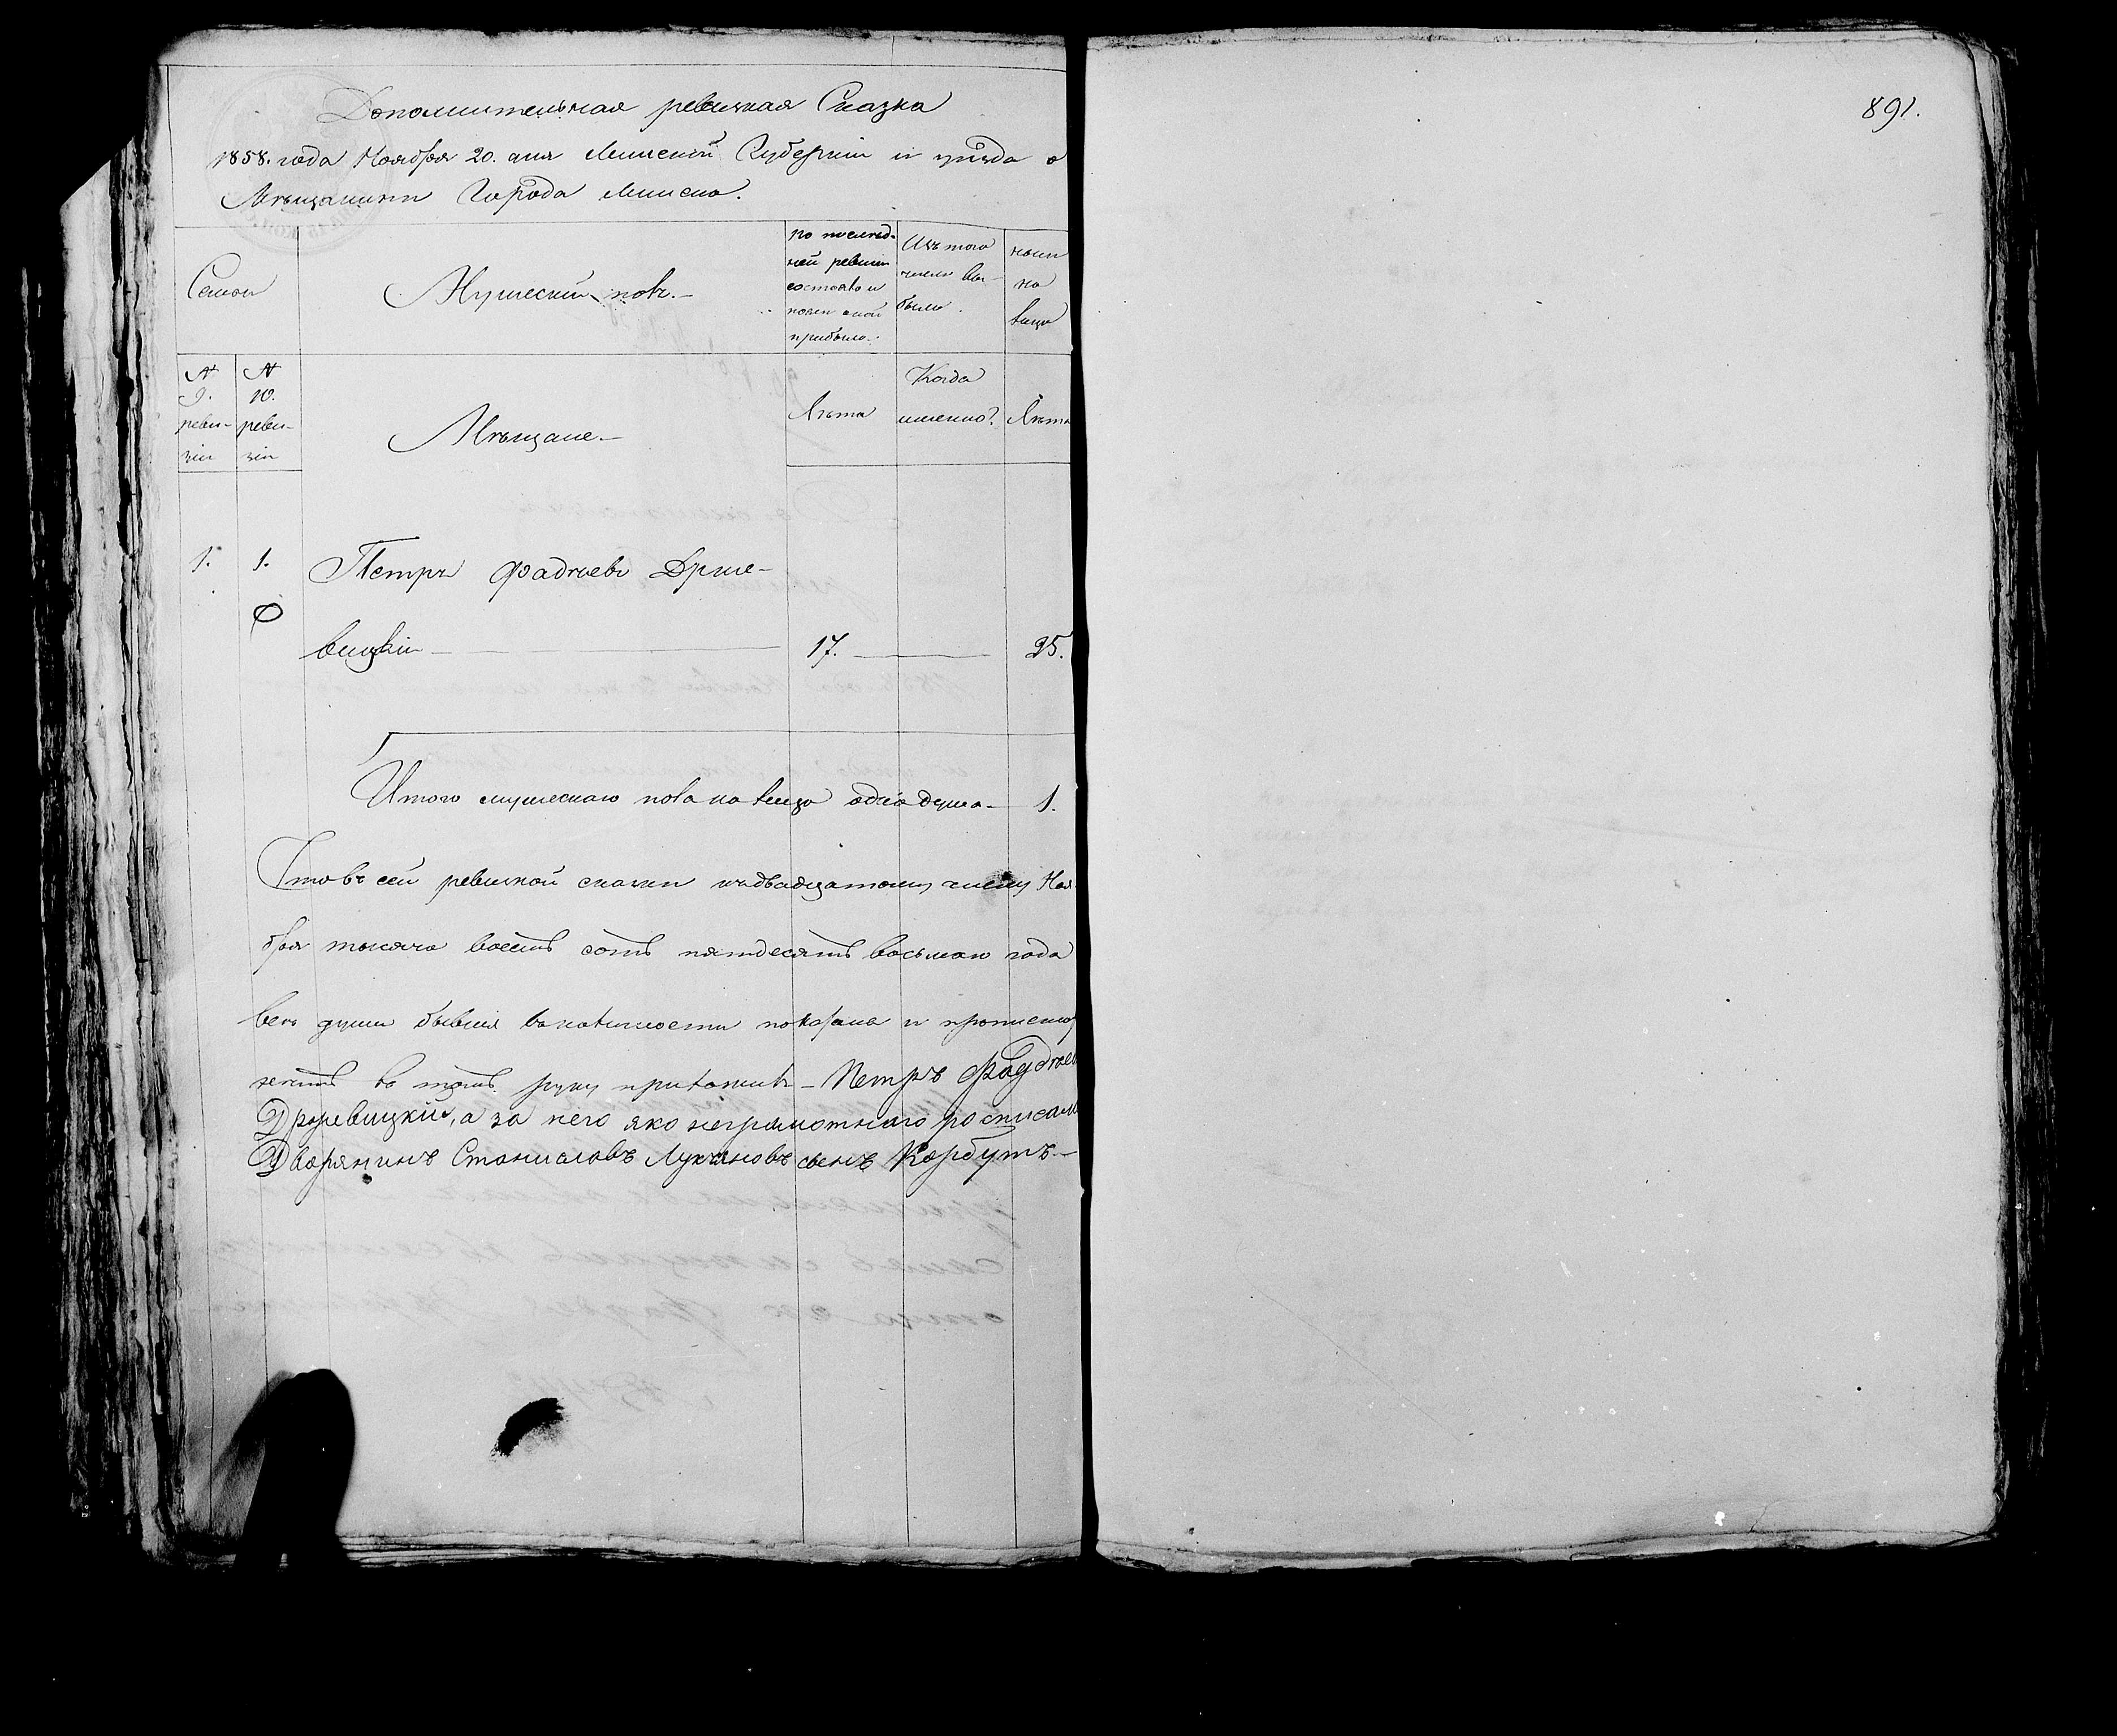 891.
Дополнительная ревизкая Сказка
1858. года Ноября 20. дня Минской Губерніи и уѣзда о
Мѣщанинѣ Города Минска.
Семьи
Мужескій полъ.—
по послѣд-
ней ревизіи
состояло и
послѣ оной
прибыло.
Изъ того
числа вы-
было.
нынѣ
на
лицо
№
9.
реви-
зіи
№
10.
реви-
зіи
Мѣщане.—
Лѣта
Когда
именно?
Лѣта
1. 1. Петръ Фадѣевъ Држе-
вицкій — 17. — 25.
Итого мужескаго пола на лицо одна душа — 1.
Что въ сей ревизкой сказки къ двадцатому числу Ноя-
бря тысяча восемь сотъ пятдесятъ восьмаго года
всѣ души бывшія въ наличности показаны и прописныхъ
нетъ въ томъ руку приложилъ — Петръ Фадѣевъ
Држевицкій, а за него яко неграмотнаго росписалъ
Дворянинъ Станиславъ Лукьяновъ сынъ Корбутъ.—